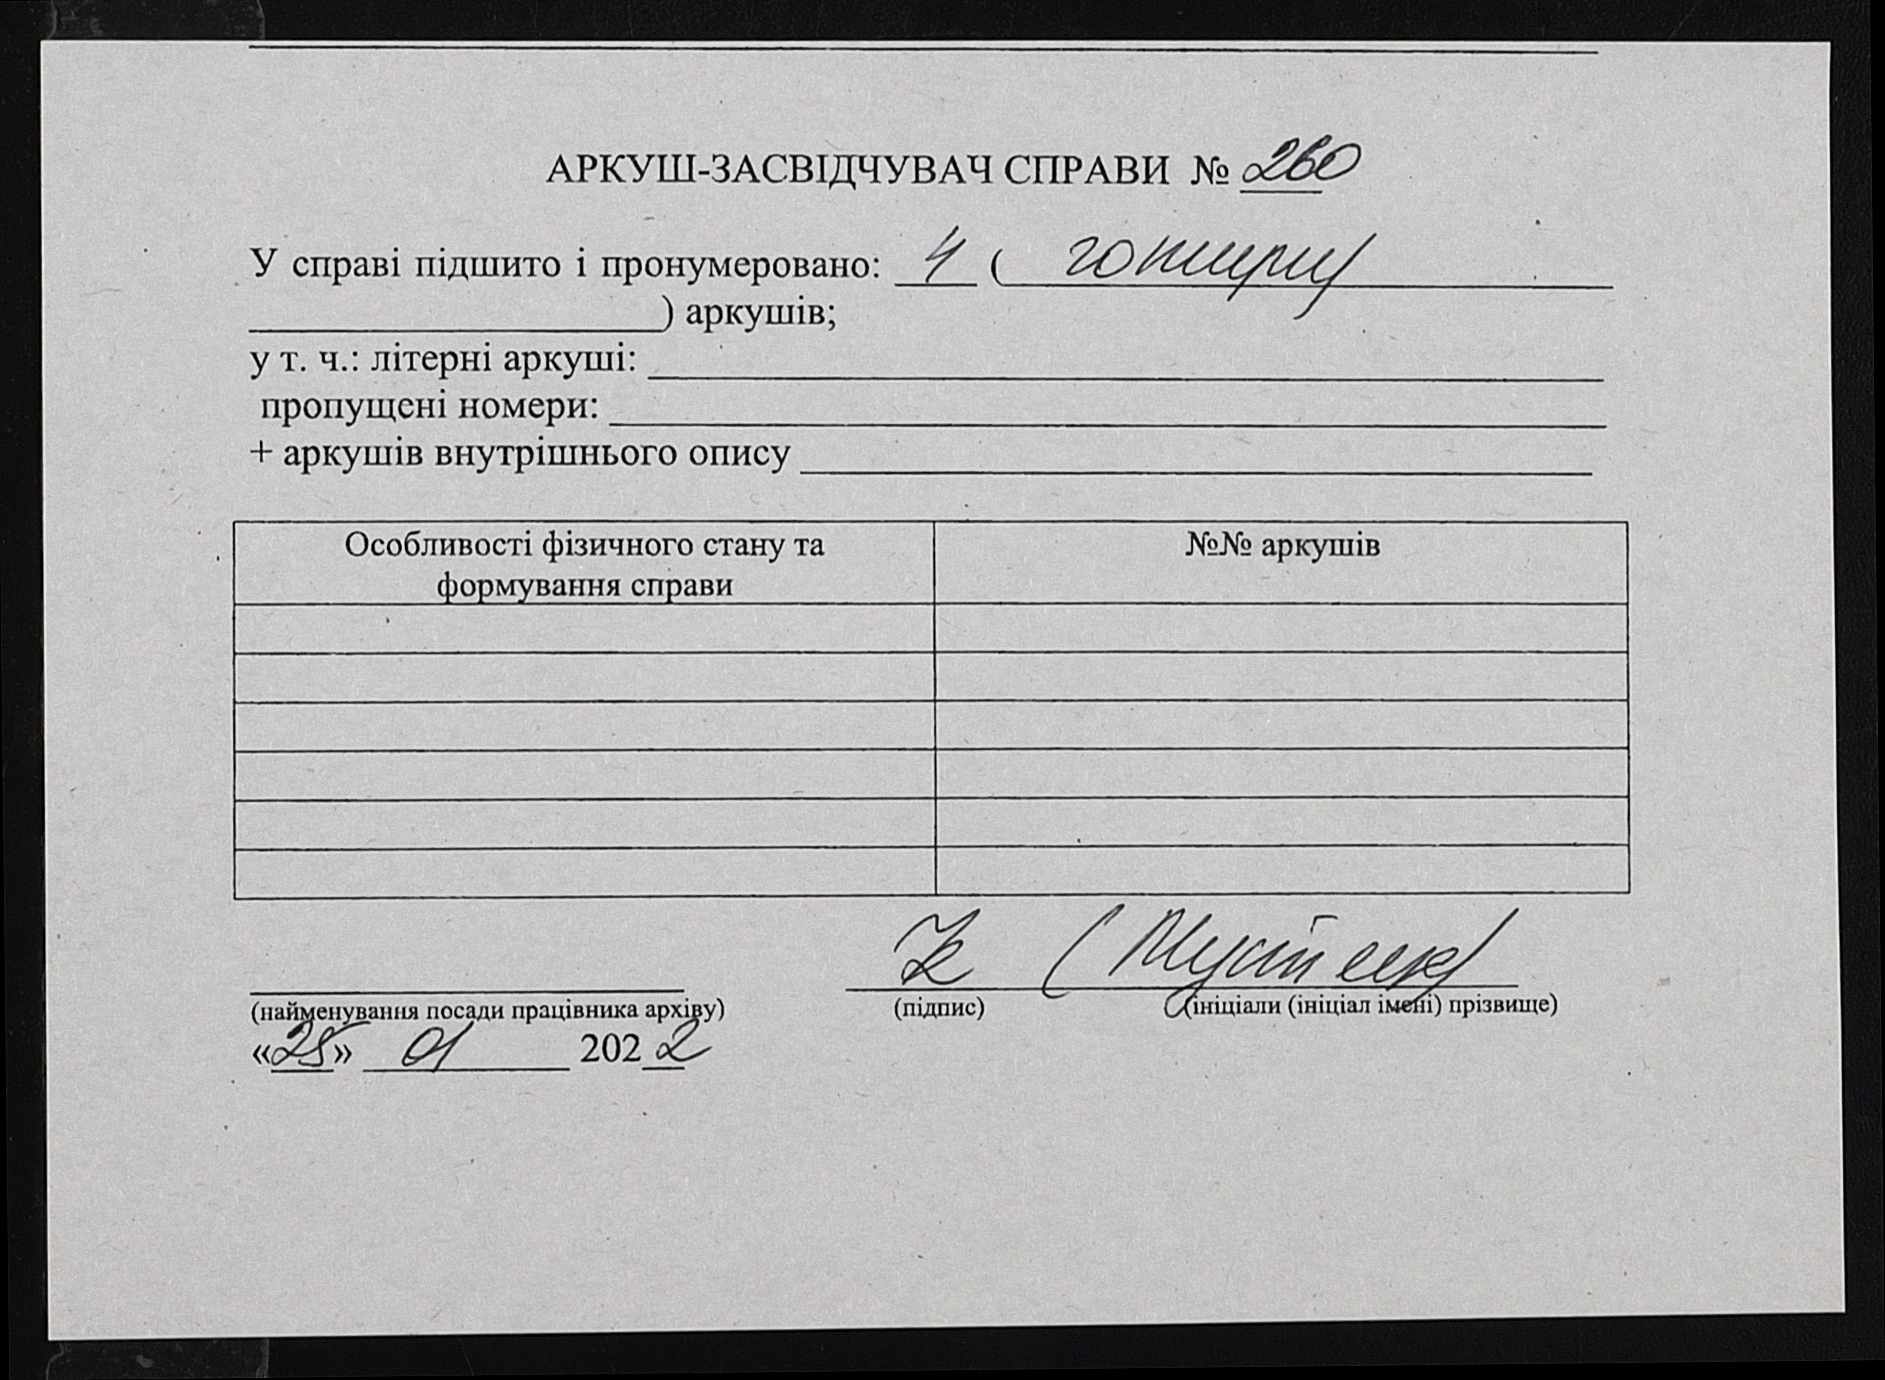 АРКУШ-ЗАСВІДЧУВАЧ СПРАВИ № 260
У справі підшито і пронумеровано: 4 ( чотири
) аркушів;
у т. ч.: літерні аркуші:
пропущені номери:
+ аркушів внутрішнього опису
Особливості фізичного стану та
формування справи
№№ аркушів
(найменування посади працівника архіву)
(підпис)
(ініціали (ініціал імені) прізвище)
«25» 01 2022